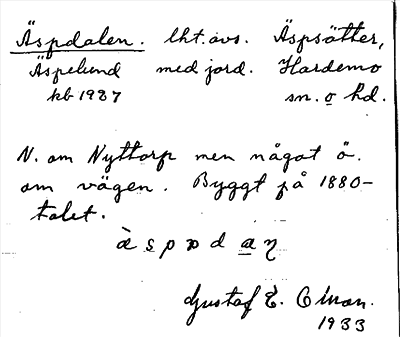 Äspdalen. lht. avs. Äspsätter,
Äspelund med jord. Hardemo
kb 1927 sn. o hd.
N. om Nyttorp men något ö.
om vägen. Byggt på 1880-
talet.
Gustaf E.
1933